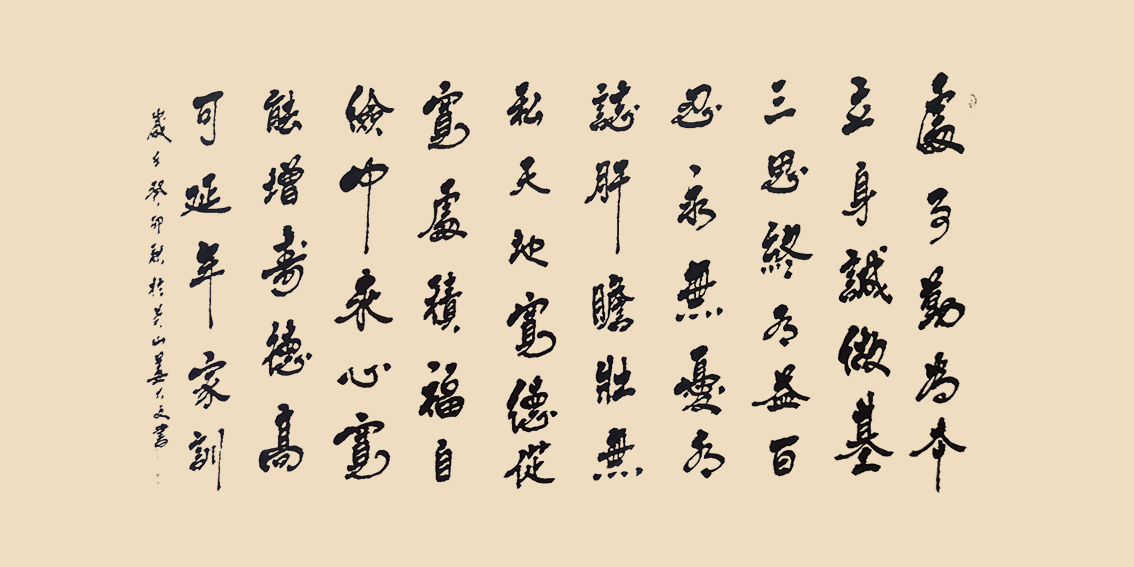 處事勤為本
立身誠做基
三思終有益百
忍永無憂有
誌肝膽壯無
私天地寬德從
寬處積福自
儉中來心寬
能增壽德高
可延年家訓
歲在癸卯秋於黄山姜大文書